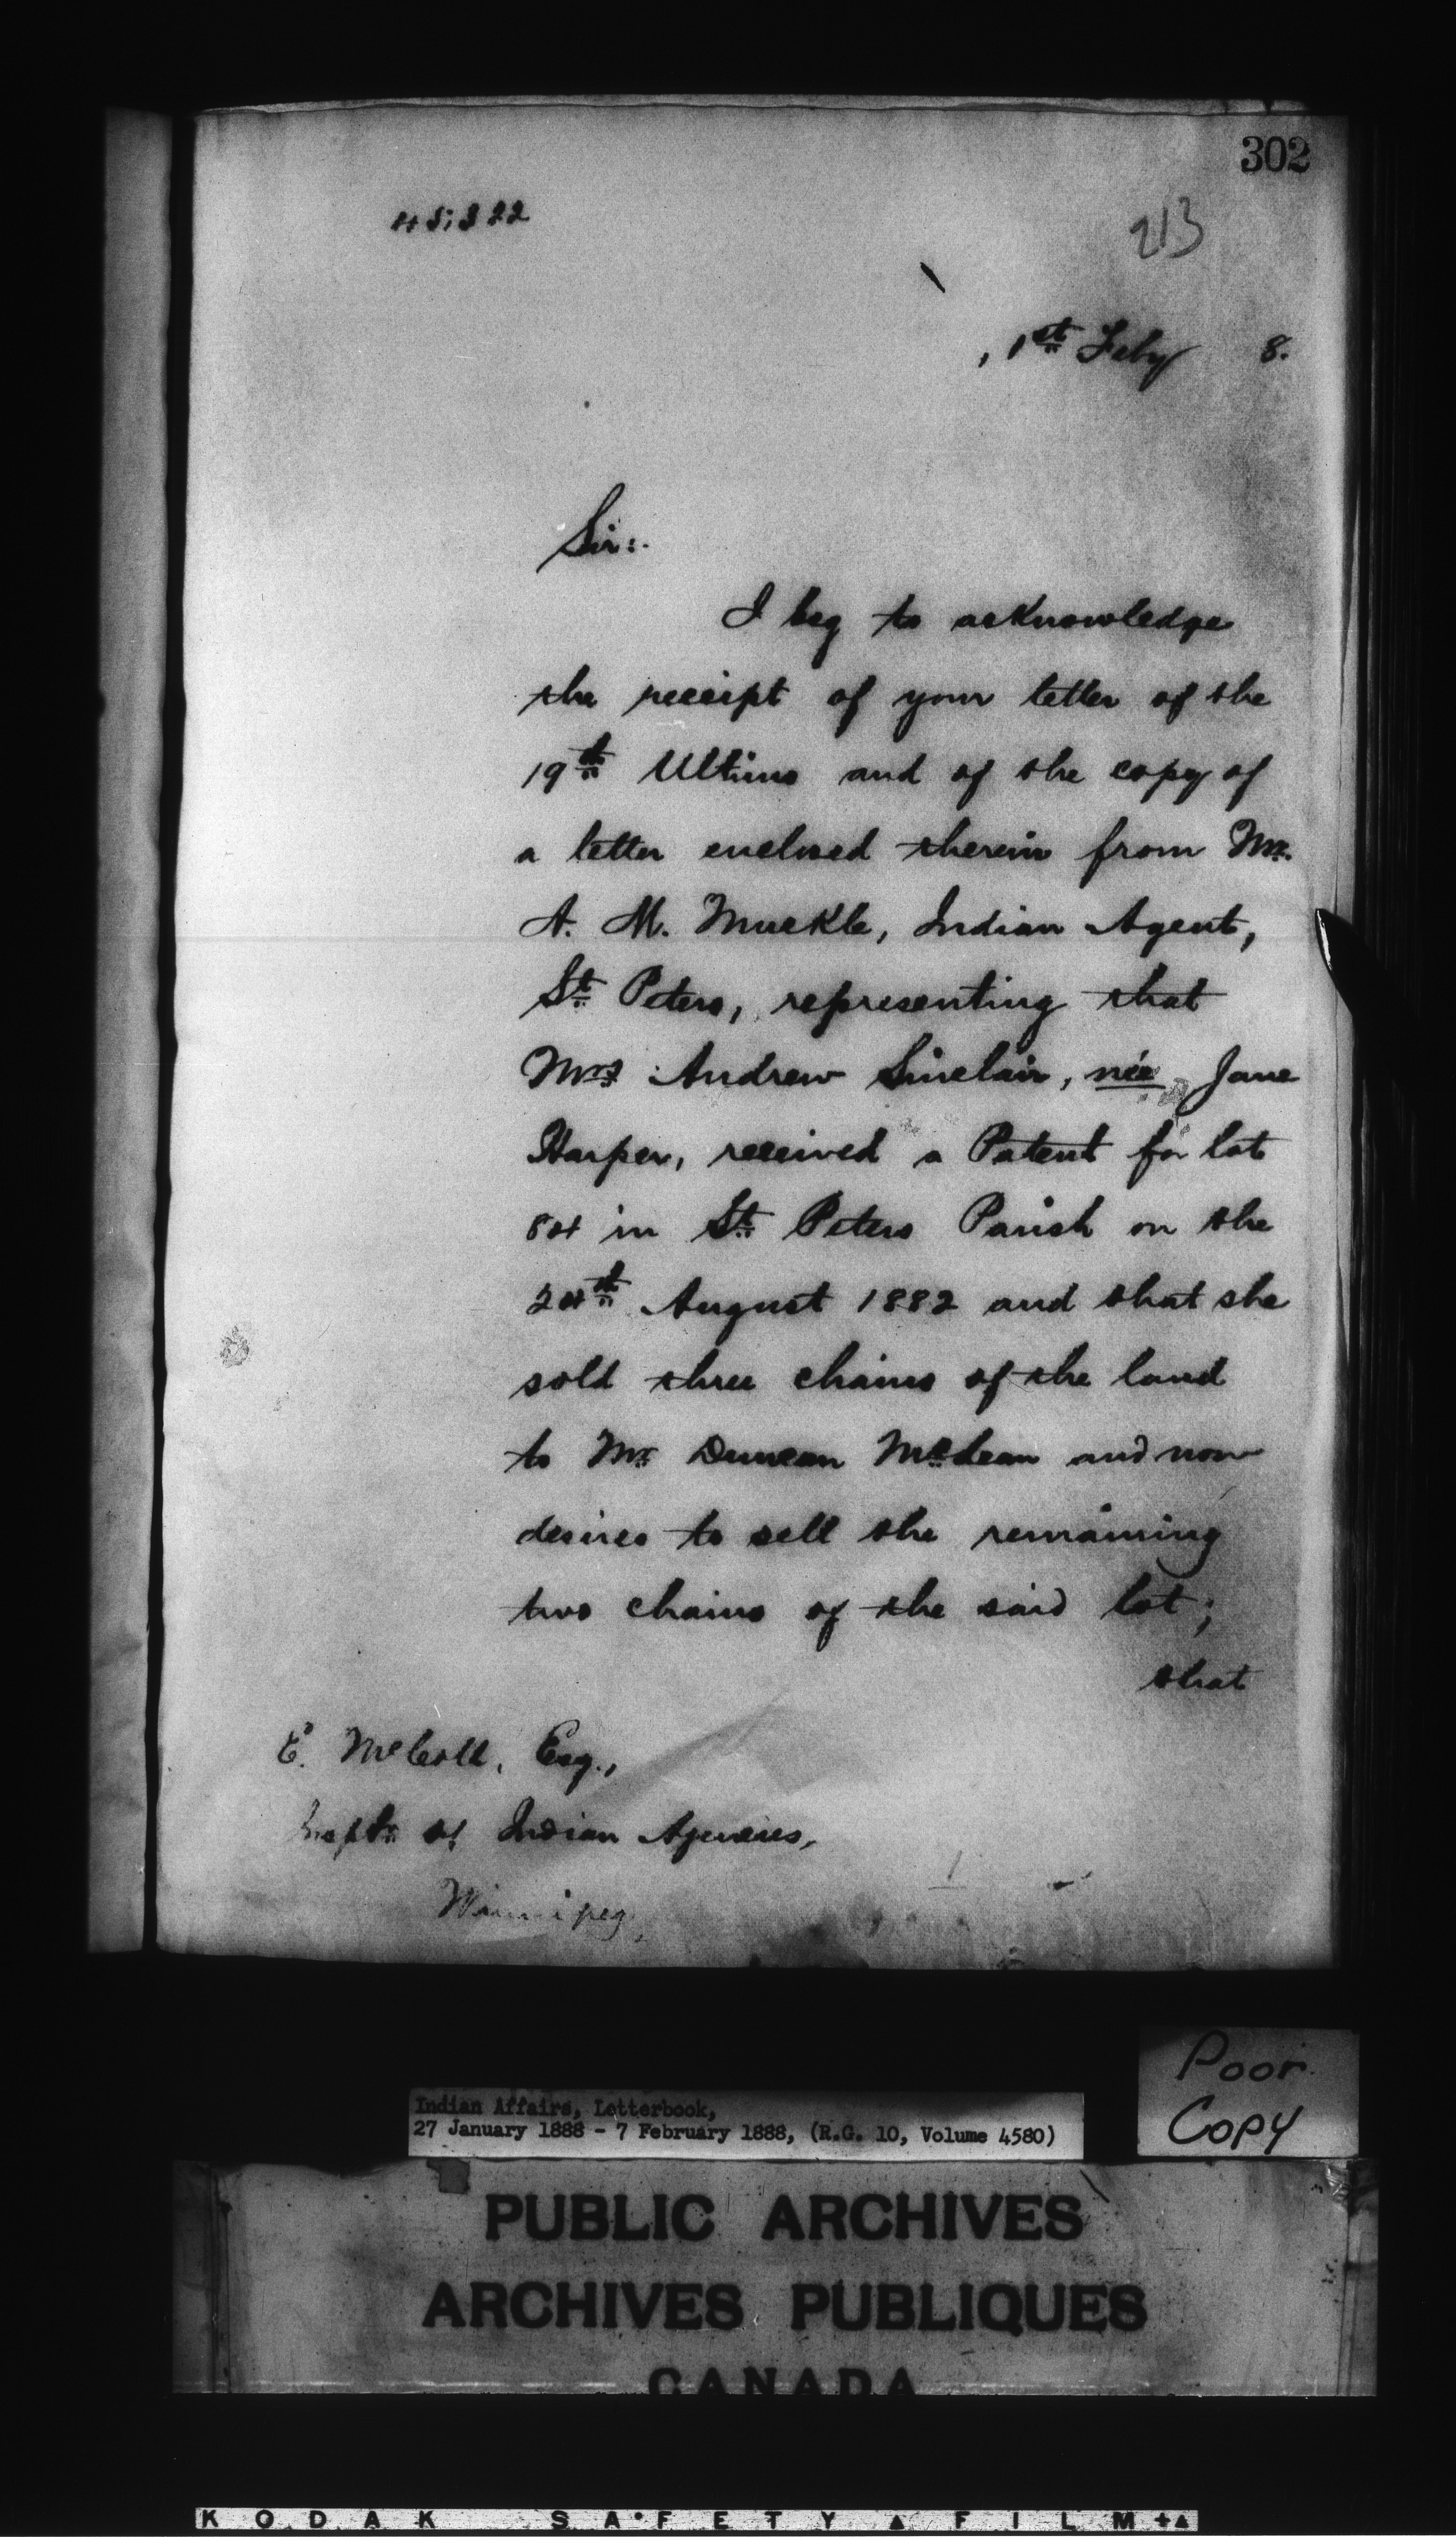 302
213
1st Feby 8.
Sir:.
I beg to acknowledge
the receipt of your letter of the
19th Ultimo and of the copy of
a letter enclosed therein from Mr.
A. M. Muckle, Indian Agent,
St. Peters, representing that
Mrs Andrew Sinclair, née Jane
Harper, received a Patent for lot
84 in St. Peters Parish on the
24th August 1882 and that she
sold three chains of the land
to Mr Duncan McLean and now
desires to sell the remaining
two chains of the said lot;
that
E. McColl, Esq.,
Inspr. of Indian Agencies,
Winnipeg,
Poor
Copy
Indian Affairs, Letterbook,
27 January 1888 - 7 February 1888, (R.G. 10, Volume 4580)
PUBLIC ARCHIVES
ARCHIVES PUBLIQUES
CANADA
KODAK SAFETY FILM